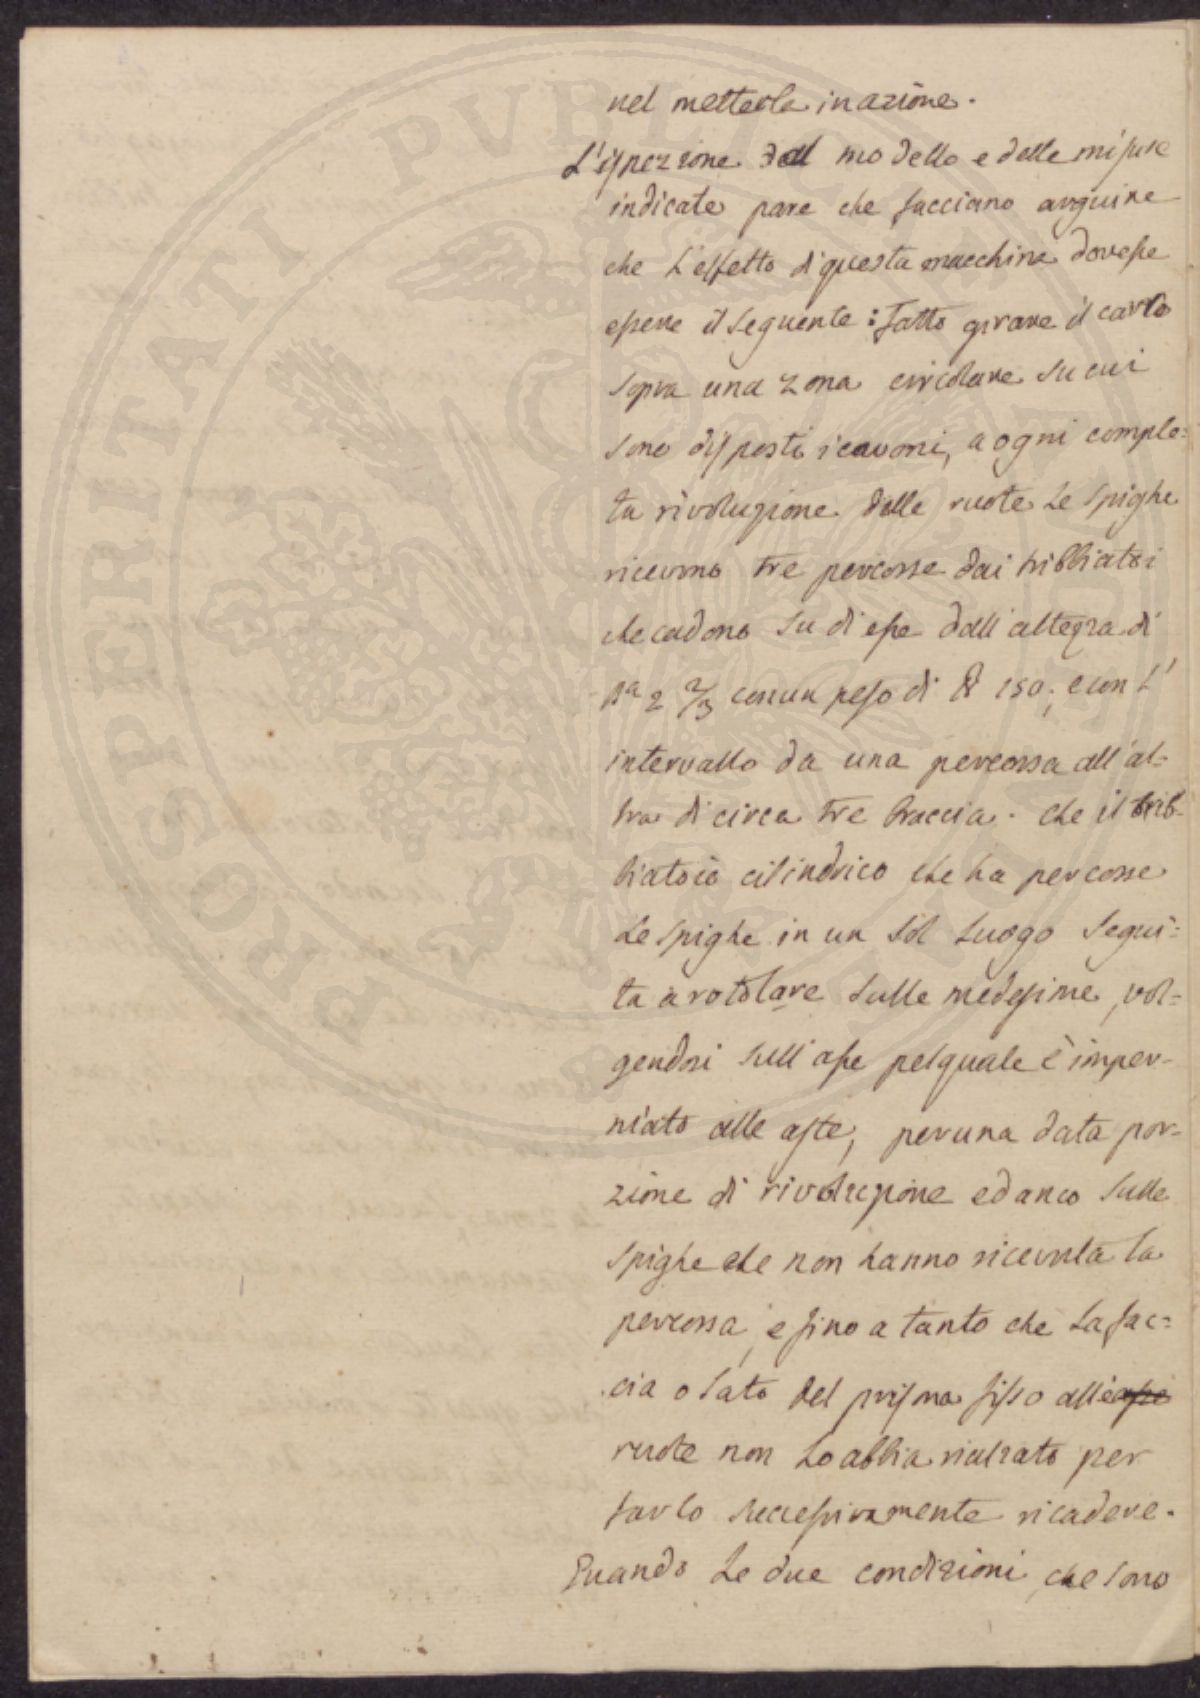 nel metterla in azione.
L'ispezione del modello e delle misure
indicate pare che facciano arguire
che l'effetto di questa macchina dovesse
essere il seguente: fatto girare il carro
sopra una zona circolare su cui
sono disposti i covoni, a ogni comple=
ta rivoluzione delle ruote le spighe
ricevono tre percosse dai tribbiatoi
che cadono su di esse dall'altezza di
Ba 2 2/3 con un peso di ℔ 150; e con l'
intervallo da una percossa all'al=
tra di circa tre braccia. Che il trib=
biatoio cilindrico che ha percosse
le spighe in un sol luogo segui=
ta a rotolare sulle medesime, vol=
gendosi sull'asse pel quale è imper=
niato alle aste, per una data por=
zione di rivoluzione ed anco sulle
spighe che non hanno ricevuta la
percossa, e fino a tanto che la fac=
cia o lato del prisma fisso alle asse
ruote non lo abbia rialzato per
farlo successivamente ricadere.
Quando le due condizioni, che sono
PROSPERITATI PVBLICAE